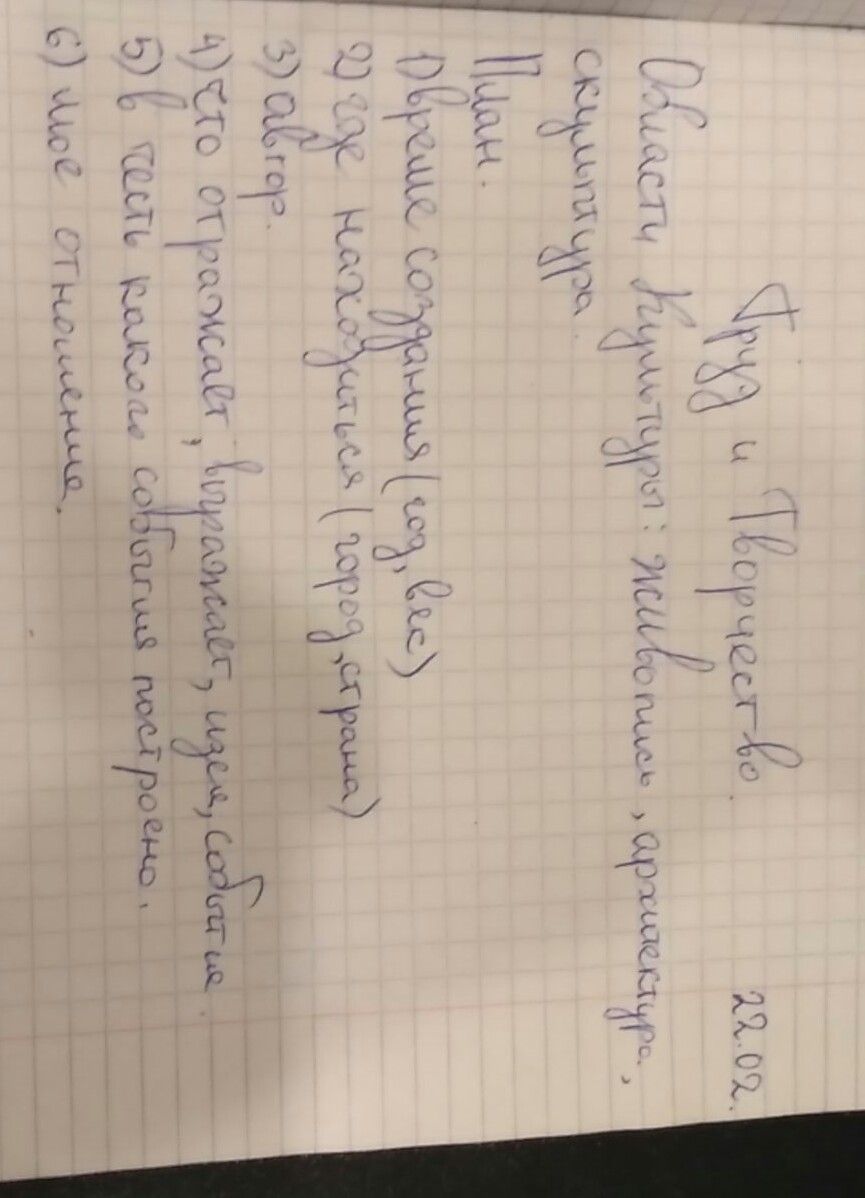 Труд и Творчество. 22.02.
Области Культуры: живопись, архитектура,
скульптура.
План.
1) време создания (год, век)
2) где находиться (город, страна)
3) автор.
4) что отражает, выражает, идея, событие.
5) в честь какого события построено.
6) мое отношение.